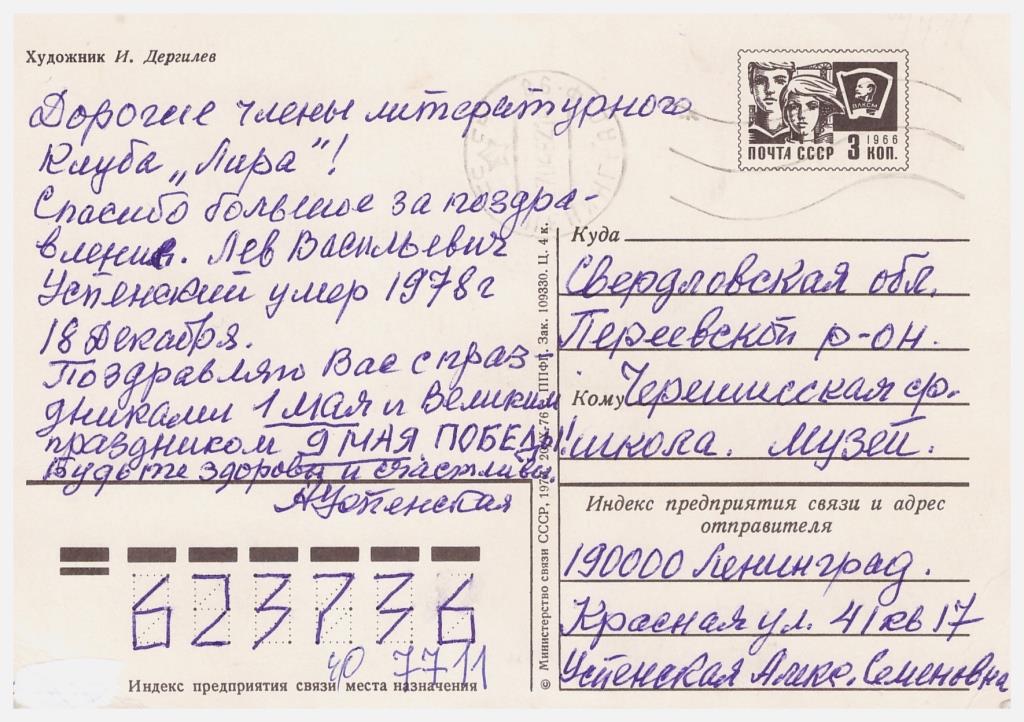 Художник И. Дергилев
Дорогие члены литературного
клуба „Лира"!
Спасибо большое за поздра-
вление. Лев Васильевич
Успенский умер 1978 г
18 декабря.
Поздравляю Вас с праз
дниками 1 мая и Великим
праздником 9 МАЯ ПОБЕДЫ!
Будьте здоровы и счастливы.
АУспенская
ВЛКСМ
1966
ПОЧТА СССР 3 КОП.
Куда
Свердловская обл.
р-он.
Кому Черемисская ср.
школа. Музей.
Индекс предприятия связи и адрес
отправителя
190000 Ленинград.
Красная ул. 41 кв 17
Успенская Алекс. Семеновна
623736
77 11
Индекс предприятия связи места назначения
© Министерство связи СССР, ППФГ. Зак. 109330. Ц. 4 к.